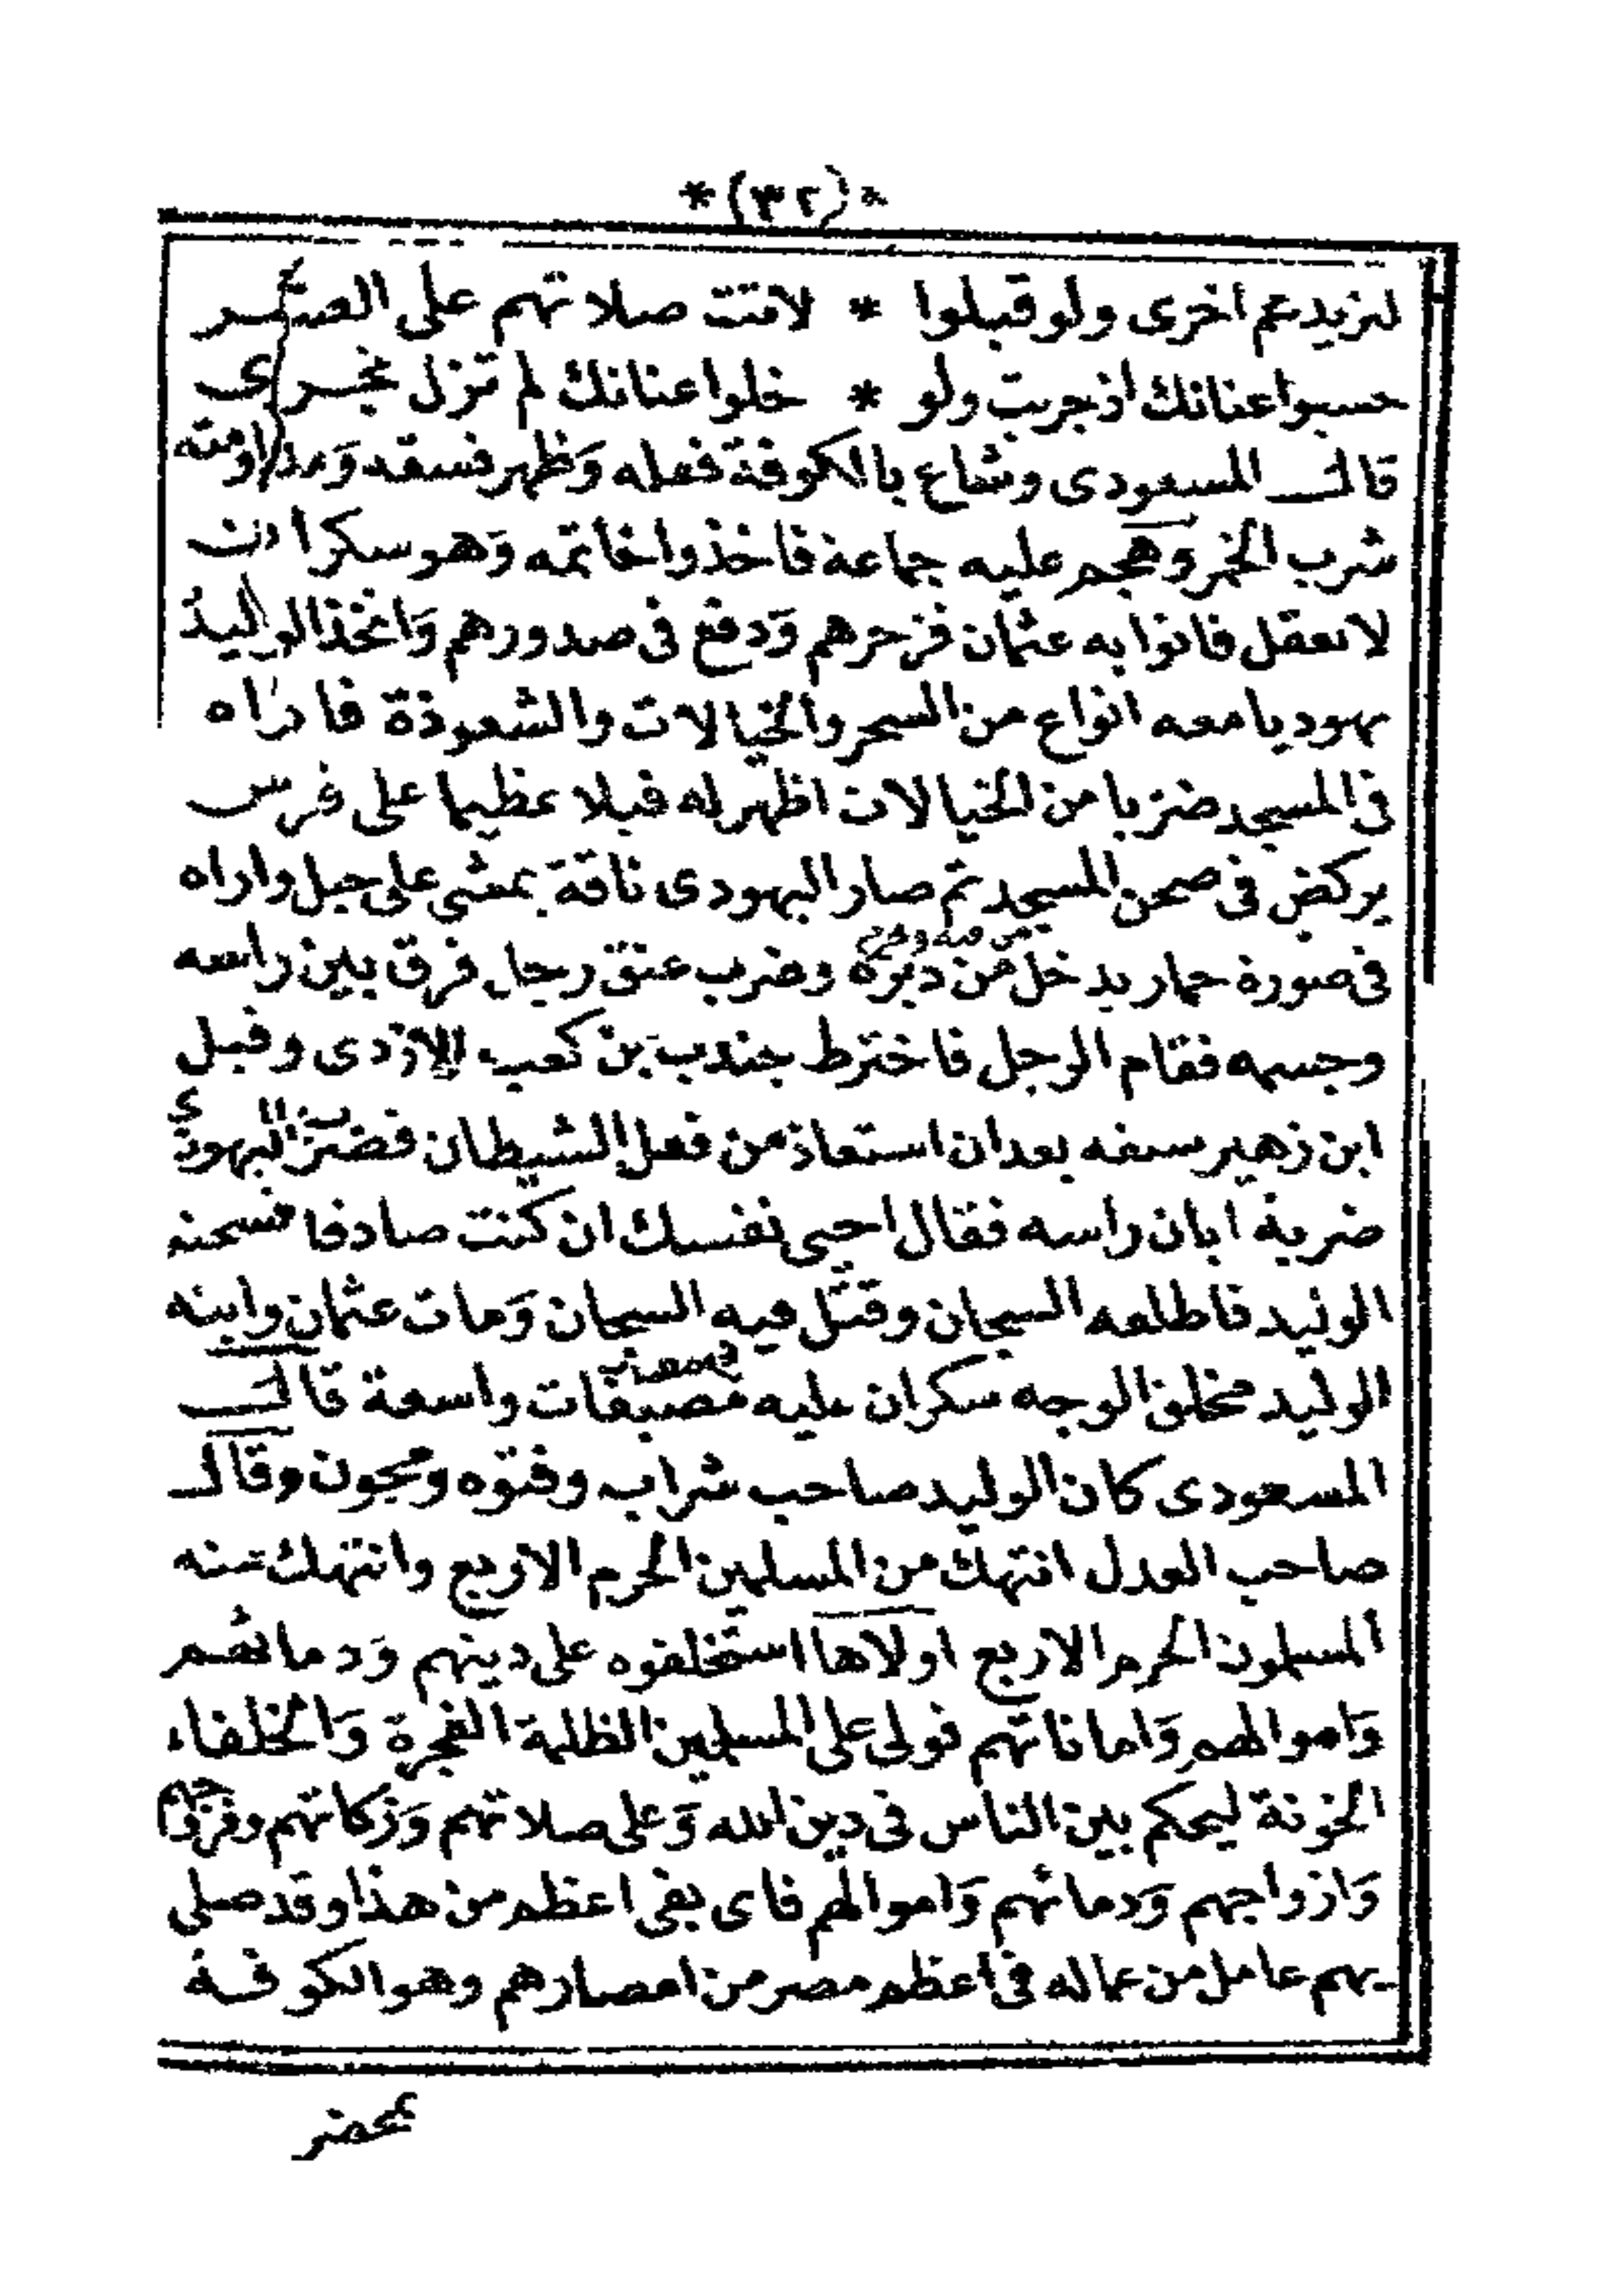 *(٣٢)*
ليزيدهم اخرى ولو قبلوا * لاتت صلاتهم على العشر
حبسوا عنانك اذ جريت ولو * خلوا عنانك لم تزل تجرى
قال المسعودى وشاع بالكوفة فعله وَظهر فسقه وَمداومته
شرب الخمر وهجم عليه جماعة فاخذوا خاتمه وَهو سكران
لا يعقل فاتوا به عثمان فزجرهم وَدفع فى صدورهم وَاتخذ الوليد
يهوديا معه انواع من السحر والخيالات والشعوذة فاراه
فى المسجد ضربا من الخيالات اظهر له فيلا عظيما على فرس
يركض فى صحن المسجد ثم صار اليهودى ناقة يمشى على حبل واراه
فى صورة حمار يدخل من دبره وضرب عنق رجل فرق بين راسه
وجسمه فقام الرجل فاخترط جندب بن كعب الازدى وقيل
ابن زهير سيفه بعد ان استعاذ من فعل الشيطان فضرب اليهودى
ضربة ابان راسه فقال احيى نفسك ان كنت صادقا فسجنه
الوليد فاطلعه السجان وقتل فيه السجان وَمات عثمان وابنه
الوليد مخلق الوجه سكران عليه مصبغات واسعة قال
المسعودى كان الوليد صاحب شراب وفتوه ومجون وقال
صاحب العدل انتهك من المسلمين الحرم الاربع وانتهك منه
المسلمون الحرم الاربع اولاها استخلفوه على دينهم وَدمائهم
وَاموالهم وَاماناتهم فولى على المسلمين الظلمة الفجرة وَالخلفاء
الخونة ليحكم بين الناس فى دين الله وَعلى صلاتهم وَزكاتهم وفروجهم
وَازواجهم وَدمائهم وَاموالهم فاى بغى اعظم من هذا وقد صلى
بهم عامل من عماله فى اعظم مصر من امصارهم وهو الكوفة
بمحضر